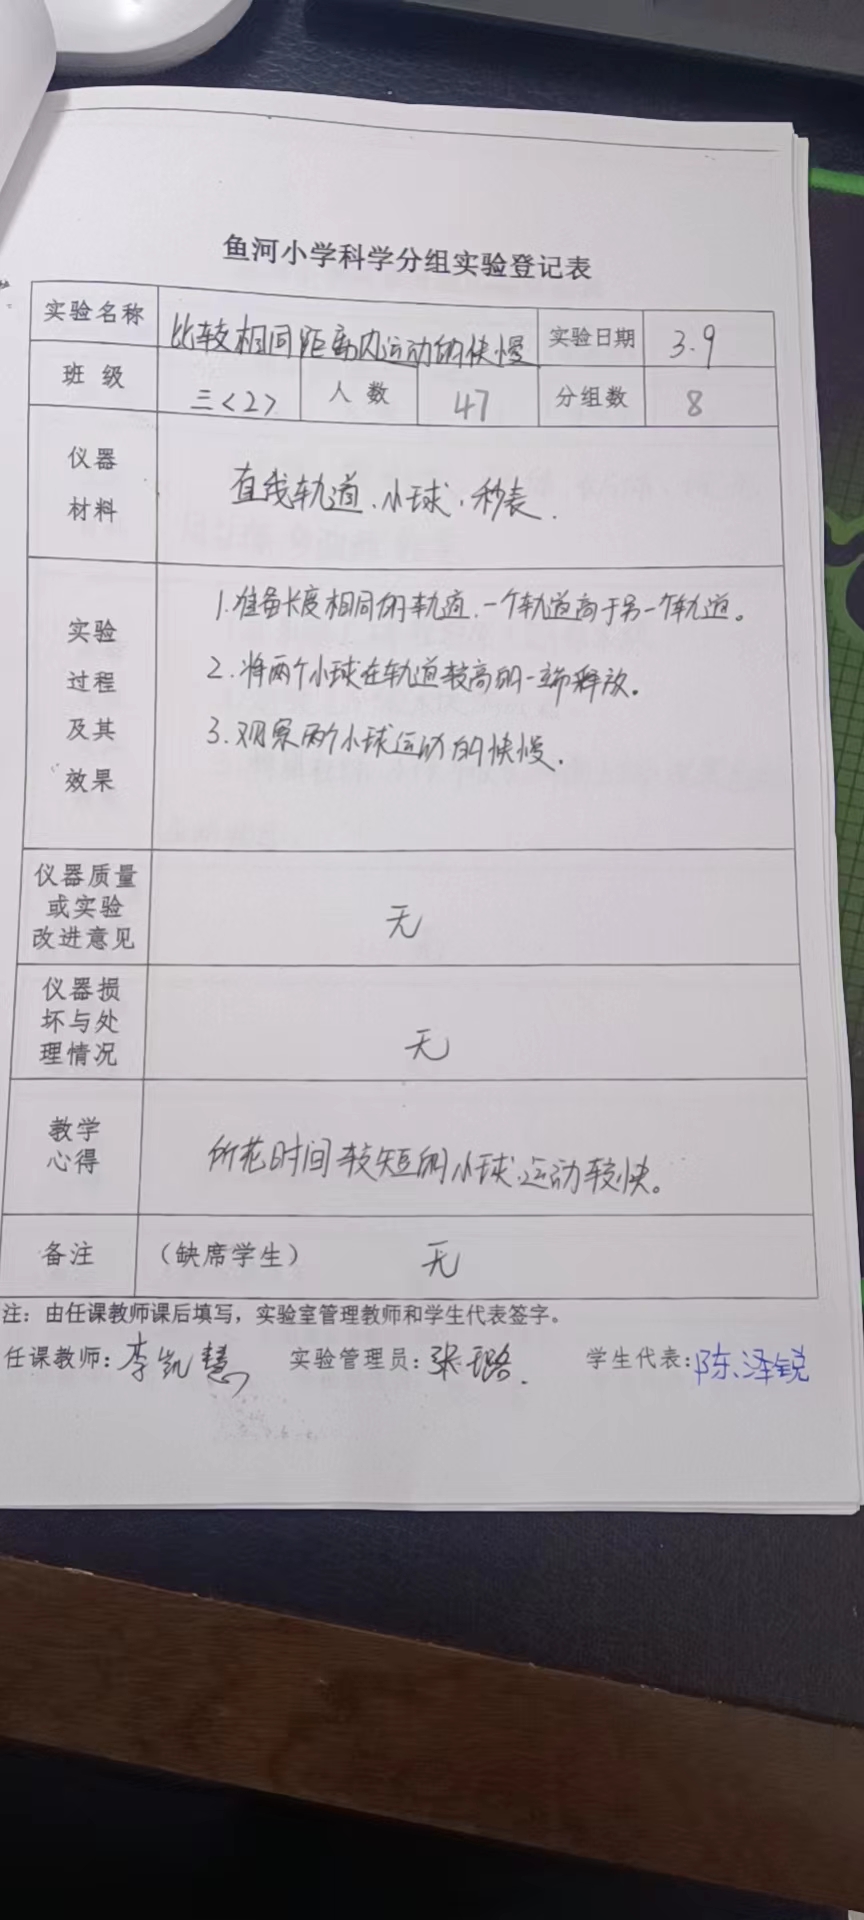 鱼河小学科学分组实验登记表
实验名称 比较相同距离内运动的快慢 实验日期 3.9
班 级 三<2> 人 数 47 分组数 8
仪器
材料
直线轨道、小球、秒表.
实验
过程
及其
效果
1.准备长度相同的轨道.一个轨道高于另一个轨道。
2.将两个小球在轨道较高的一端释放。
3.观察两个小球运动的快慢.
仪器质量
或实验
改进意见
无
仪器损
坏与处
理情况
无
教学
心得
所花时间较短的小球运动较快。
备注 （缺席学生） 无
注：由任课教师课后填写，实验室管理教师和学生代表签字。
任课教师: 李凯慧 实验管理员: 张璐. 学生代表: 陈泽锐